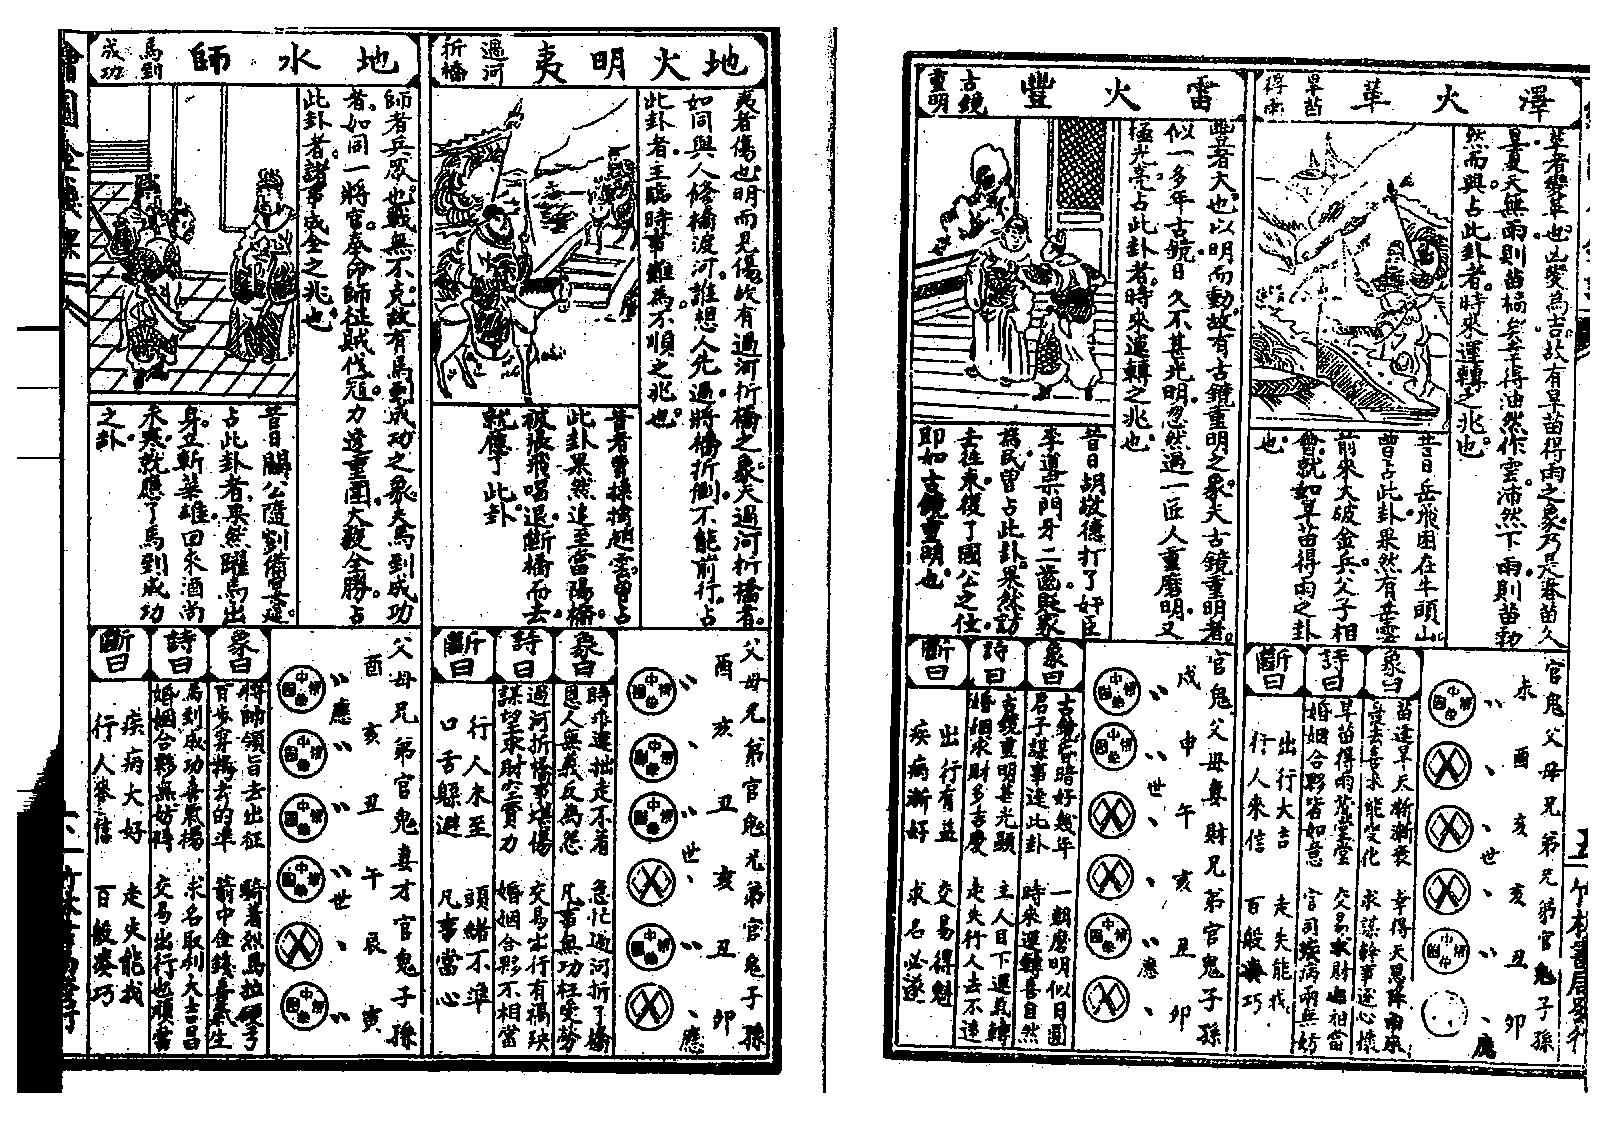 澤火革
旱苗
得雨
革者變革也凶變為吉故有旱苗得雨之象乃是春苗久
旱夏天無雨則苗槁矣幸得油然作雲沛然下雨則苗勃
然而興占此卦者時來運轉之兆也
昔日岳飛困在牛頭山
曾占此卦果然有岳雲
前來大破金兵父子相
會就如旱苗得雨之卦
也
官鬼父母兄弟兄弟官鬼子孫
未酉亥亥丑卯
世
應
象曰
苗逢旱天漸漸衰 幸得天恩降雨來
憂去喜來能變化 求謀幹事遂心懷
詩曰
旱苗得雨 交易求財也相當
婚姻合夥皆如意 官司疾病兩無妨
斷曰
出行大吉 走失能找
行人來信 百般湊巧
雷火豐
古鏡
重明
豐者大也以明而動故有古鏡重明之象夫古鏡重明者
似一多年古鏡日久不甚光明忽然遇一匠人重磨明又
極光亮占此卦者時來運轉之兆也
昔日胡敬德打了奸臣
李道宗門牙二齒貶家
為民曾占此卦果然訪
去征東復了國公之位
即如古鏡重明也
官鬼父母妻財兄弟官鬼子孫
戌申午亥丑卯
世
應
象曰
古鏡昏暗好幾年 一朝磨明似月圓
君子謀事逢此卦 時來運轉喜自然
詩曰
古鏡重明甚光顯 主人目下運氣轉
婚姻求財多吉慶 走失行人去不遠
斷曰
出行有益 交易得魁
疾病漸好 求名必遂
地火明夷
過河
折橋
夷者傷也明而見傷故有過河折橋之象夫過河折橋者
如同與人修橋渡河誰想人先過將橋折倒不能前行占
此卦者主臨時事難為不順之兆也
昔者曹操擒趙雲曾占
此卦果然追至當陽橋
被張飛唱退斷橋而去
就應了此卦
父母兄弟官鬼兄弟官鬼子孫
酉亥丑亥丑卯
世
應
象曰
時乖運拙走不着 急忙過河折了橋
恩人無義反為怨 凡事無功枉受勞
詩曰
過河折橋事堪傷 交易出行有禍殃
謀望求財空費力 婚姻合夥不相當
斷曰
行人未至 頭緒不準
口舌縣避 凡事當心
地水師
馬到
成功
師者兵眾也戰無不克故有馬到成功之象夫馬到成功
者如同一將官奉命師征賊伐寇力逢重圍大殺全勝占
此卦者諸事成全之兆也
昔日關公隨劉備
占此卦者果然躍馬出
身立斬華雄回來酒尚
未寒就應了馬到成功
之卦
父母兄弟官鬼妻才官鬼子孫
酉亥丑午辰寅
應
世
象曰
將帥領旨去出征 騎着烈馬拉硬弓
百步穿楊去的準 箭中金錢喜氣生
詩曰
馬到成功喜氣揚 求名取利大吉昌
婚姻合夥無妨碍 交易出行也順當
斷曰
疾病大好 走失能找
行人來信 百般湊巧
竹林書局發行